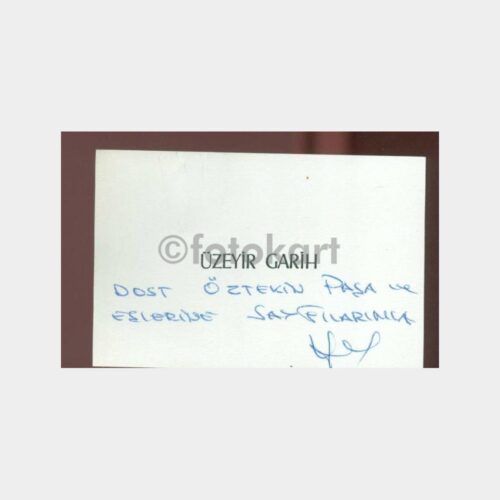 ©fotokart
ÜZEYİR GARİH
DOST ÖZTEKİN PAŞA ve
EŞLERİNE SAYGILARIMLA